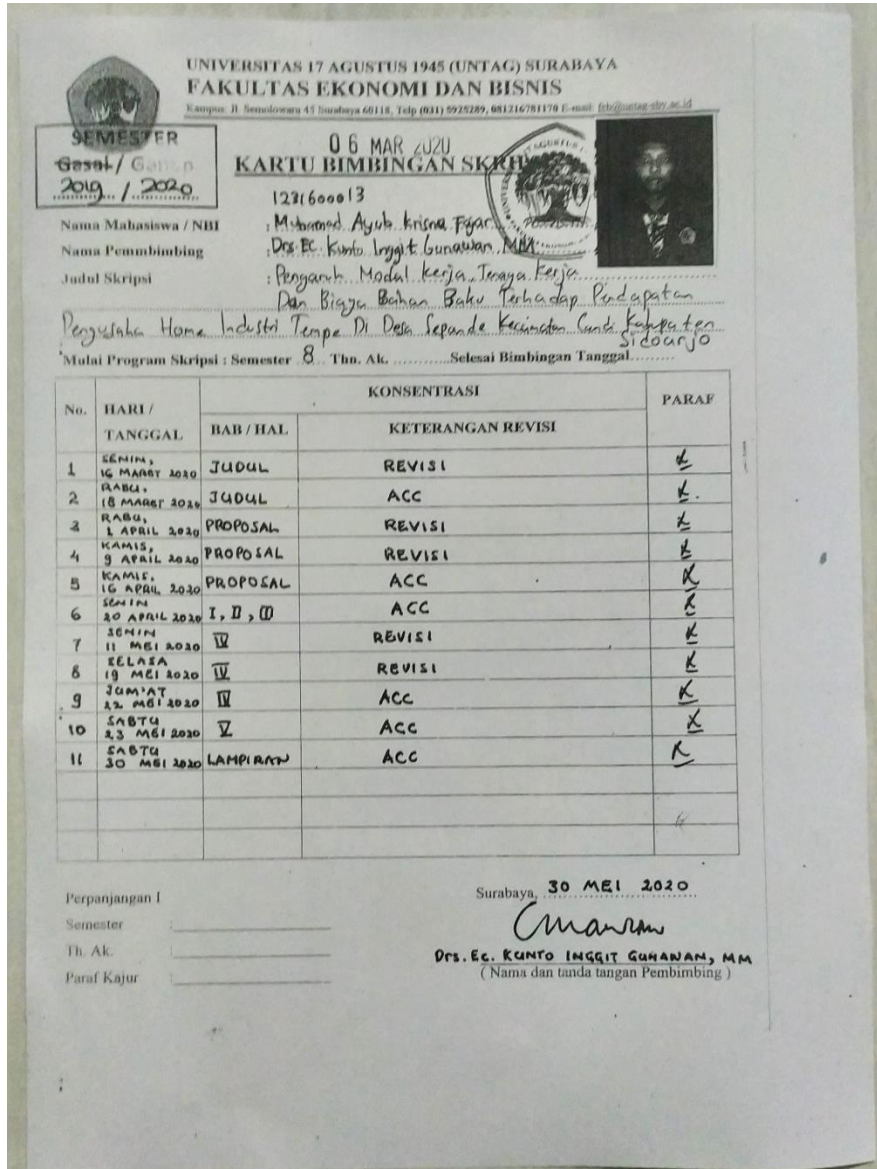 UNIVERSITAS 17 AGUSTUS 1945 (UNTAG) SURABAYA
FAKULTAS EKONOMI DAN BISNIS
Kampus: Jl. Semolowaru 45 Surabaya 60118, Telp (031) 5925289, 081216781170 E-mail: feb@untag-sby.ac.id
SEMESTER
Gasal / Genap
2019 / 2020
06 MAR 2020
KARTU BIMBINGAN SKRIPSI
1231600013
Nama Mahasiswa / NBI : Muhamad Ayub Krisna Fajar
Nama Pemmbimbing : Drs. EC. Kunto Inggit Gunawan, MM
Judul Skripsi : Pengaruh Modal Kerja, Tenaga Kerja
Dan Biaya Bahan Baku Terhadap Pendapatan
Pengusaha Home Industri Tempe Di Desa Sepande Kecamatan Candi Kabupaten
Sidoarjo
Mulai Program Skripsi : Semester 8 Thn. Ak. ............Selesai Bimbingan Tanggal.........
No. HARI / TANGGAL KONSENTRASI PARAF
BAB / HAL KETERANGAN REVISI
1 SENIN, 16 MARET 2020 JUDUL REVISI
2 RABU, 18 MARET 2020 JUDUL ACC
3 RABU, 1 APRIL 2020 PROPOSAL REVISI
4 KAMIS, 9 APRIL 2020 PROPOSAL REVISI
5 KAMIS, 16 APRIL 2020 PROPOSAL ACC
6 SENIN 20 APRIL 2020 I, II, III ACC
7 SENIN 11 MEI 2020 IV REVISI
8 SELASA 19 MEI 2020 IV REVISI
9 JUM'AT 22 MEI 2020 IV ACC
10 SABTU 23 MEI 2020 V ACC
11 SABTU 30 MEI 2020 LAMPIRAN ACC
Perpanjangan I
Semester :
Th. Ak. :
Paraf Kajur :
Surabaya, 30 MEI 2020
Drs. Ec. KUNTO INGGIT GUNAWAN, MM
( Nama dan tanda tangan Pembimbing )